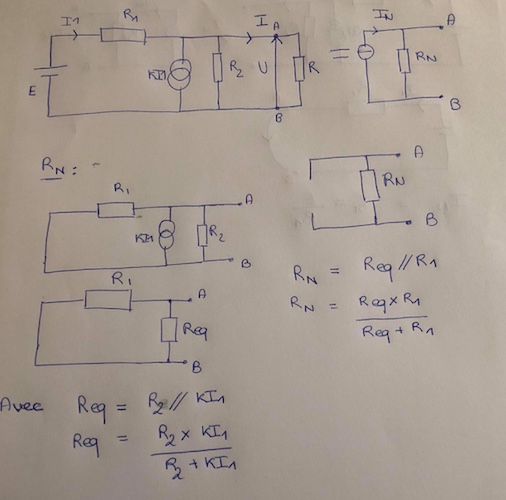 I1 R1 I A IN A
E KI1 R2 U R = RN
B B
RN : -
R1 A
KI1 R2
B
A
RN
B
R1 A
Req
B
RN = Req // R1
RN = Req x R1 / Req + R1
Avec Req = R2 // KI1
Req = R2 x KI1 / R2 + KI1